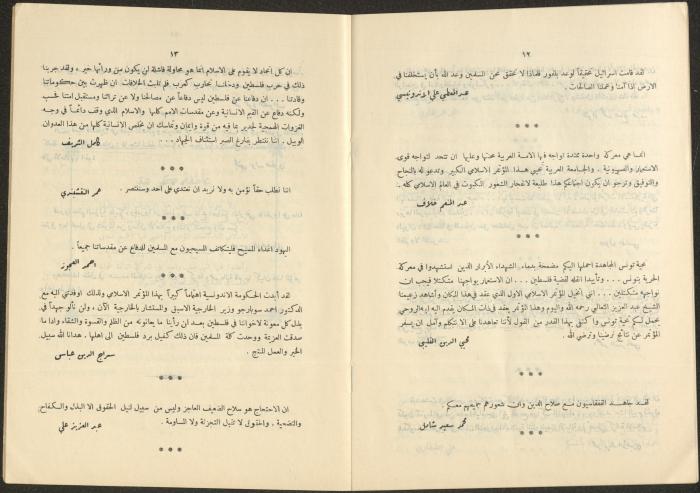 ١٢
لقد قامت اسرائيل تحقيقاً لوعد بلفور فلماذا لا نحقق نحن المسلمين وعد الله بأن يستخلفنا في
الارض اذا آمنا وعملنا الصالحات .
عبد المعطي علي اندونيسي
* * *
انما هي معركة واحدة ممتدة تواجه فيها الامة العربية محنتها وعليها ان تتحد لتواجه قوى
الاستعمار والصهيونية . والجامعة العربية تحيي هذا المؤتمر الاسلامي الكبير وتدعو له بالنجاح
والتوفيق وترجو ان يكون اجتماعكم هذا طليعة لانفجار الشعور المكبوت في العالم الاسلامي كله .
عبد المنعم خلاف
* * *
تحية تونس المجاهدة احملها اليكم مضمخة بدماء الشهداء الأبرار الذين استشهدوا في معركة
الحرية بتونس ... وتأييداً لقضية فلسطين ... ان الاستعمار يواجهنا متكتلا فيجب ان
نواجهه متكتلين ... انني اتخيل المؤتمر الاسلامي الاول الذي عقد في هذا المكان وأشاهد زعيمنا
الشيخ عبد العزيز الثعالبي رحمه الله واليوم وهذا المؤتمر يعقد في ذات المكان يقدم اليه الروحي
يحمل لكم تحية تونس وأكتفي بهذا القدر من القول لأننا تعاهدنا على الا نتكلم وآمل ان يسفر
المؤتمر عن نتائج ترضينا وترضي الله .
محيي الدين القليبي
* * *
لقد جاهد القفقاسيون مع صلاح الدين وان شعورهم جميعهم معكم .
محمد سعيد شامل
* * *
١٣
ان كل اتحاد لا يقوم على الاسلام انما هو محاولة فاشلة لن يكون من ورائها خير ، ولقد جربنا
ذلك في حرب فلسطين ودخلنا نحارب كعرب فلم تلبث الخلافات ان ظهرت بين حكوماتنا
وقادتنا ... ان دفاعنا عن فلسطين ليس دفاعاً عن مصالحنا ولا عن تراثنا ومستقبل امتنا فحسب
ولكنه دفاع عن القيم الانسانية وعن مقدسات الامم كلها والاسلام الذي وقف دائماً في وجه
الغزوات الهمجية لجدير بما فيه من قوة وايمان وتماسك ان يخلص الانسانية كلها من هذا العدوان
الوبيل . اننا ننتظر بفارغ الصبر استئناف الجهاد ...
كامل الشريف
* * *
اننا نطلب حقاً نؤمن به ولا نريد ان نعتدي على احد وسننتصر .
عمر النقشبندي
* * *
اليهود اعداء للمسيح فليتكاتف المسيحيون مع المسلمين للدفاع عن مقدساتنا جميعاً .
احمد العجوز
* * *
لقد أبدت الحكومة الاندونسية اهتماماً كبيراً بهذا المؤتمر الاسلامي ولذلك اوفدتني اليه مع
الدكتور احمد سوبارجو وزير الخارجية الاسبق والمستشار بالخارجية الآن ، ولن نألو جهداً في
بذل كل معونة لاخواننا في فلسطين بعد ان رأينا ما يعانونه من الظلم والقسوة والشقاء واذا ما
صدقت العزيمة ووحدت كلمة المسلمين فان ذلك كفيل برد فلسطين الى اهلها . هدانا الله سبيل
الخير والعمل المنتج .
سراج الدين عباس
* * *
ان الاحتجاج هو سلاح الضعيف العاجز وليس من سبيل لنيل الحقوق الا البذل والكفاح
والتضحية . والحقوق لا تقبل التجزئة ولا المساومة .
عبد العزيز علي
* * *